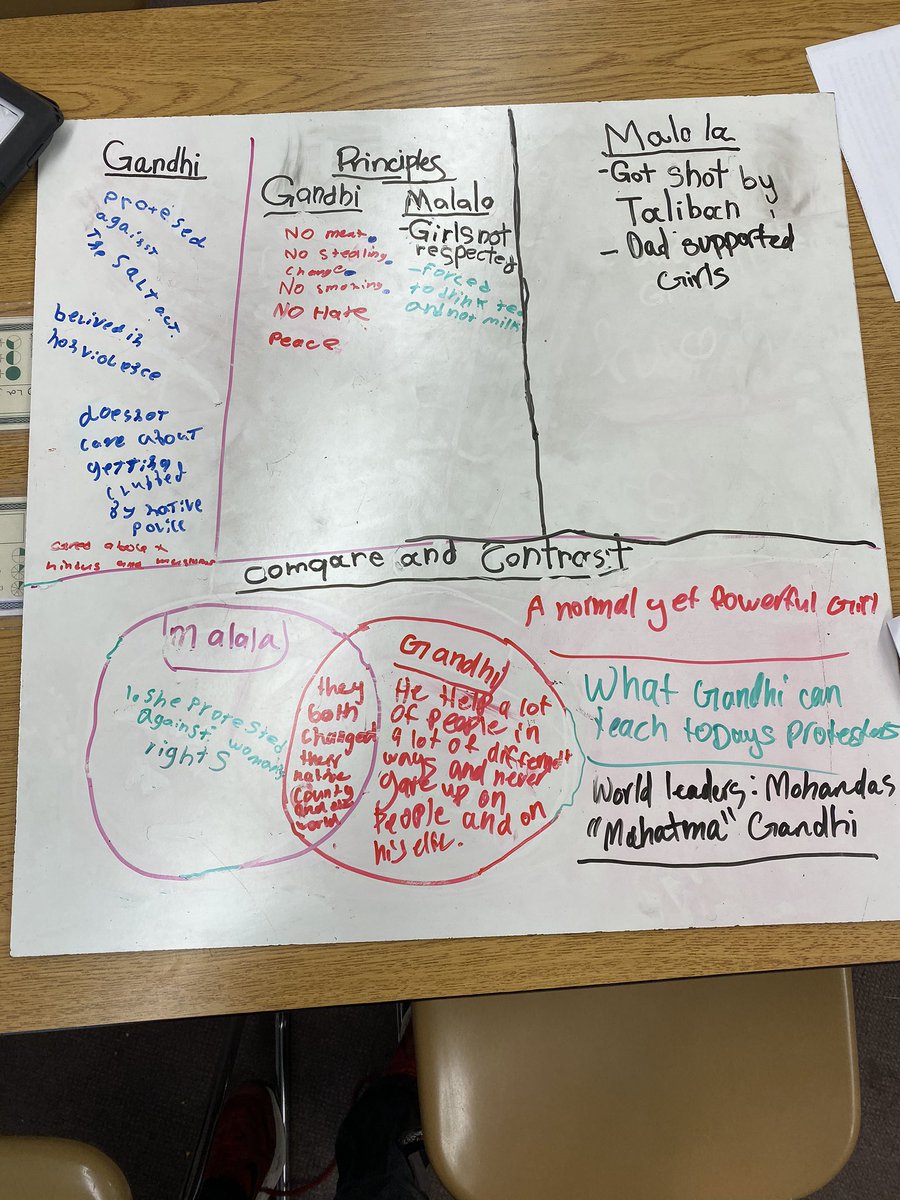 Gandhi
protesed
against
the salt act.
belived in
nonviolence
does not
care about
getting
clubbed
By native
police
cared about
hindus and
Principles
Gandhi
No meat.
No stealing.
change.
No smoking.
No Hate
Peace
Malalo
-Girls not
respected
-forced
to drink tea
and not milk
Malala
-Got shot by
Taliban
- Dad supported
Girls
Compare and Contrast
Malala
1. She protested
against woman's
rights
they
both
changed
their
native
county
and
world
Gandhi
He Help a lot
of people in
a lot of different
ways and never
gave up on
people and on
hiself.
A normal yet Powerful Girl
What Gandhi can
teach todays protesters
World leaders: Mohandas
"Mahatma" Gandhi